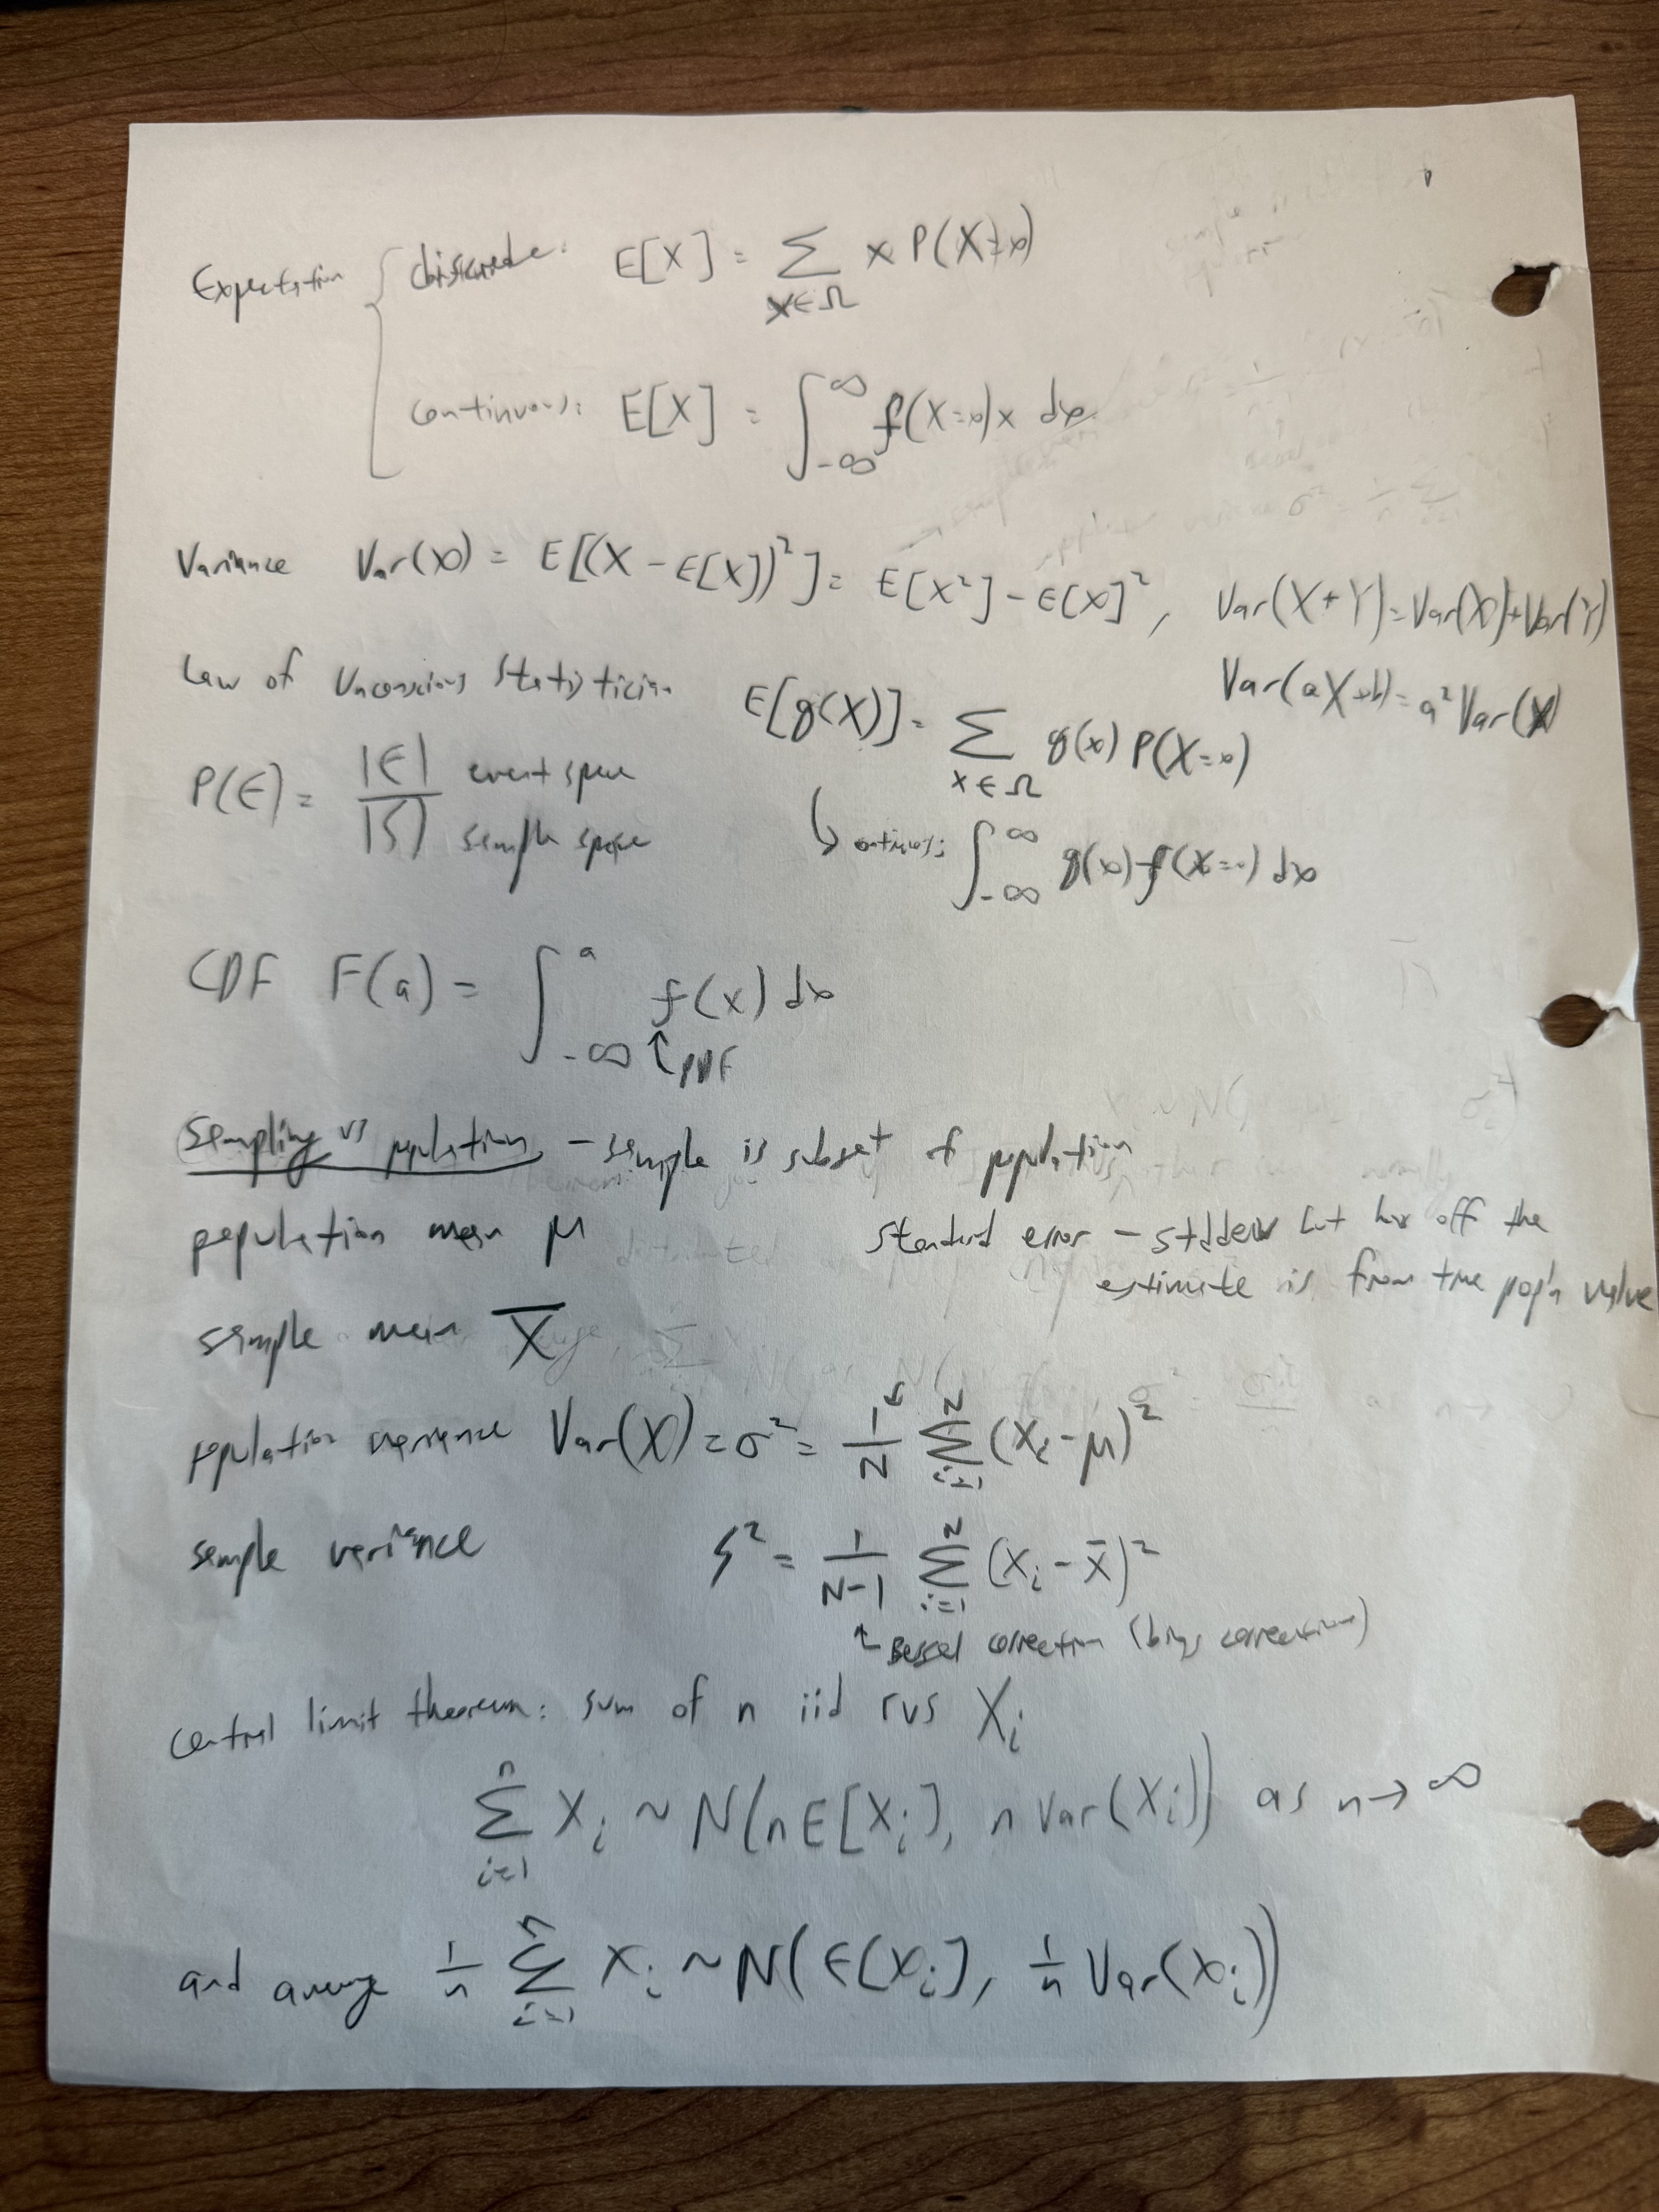 Expectation { discrete: E[X] = ∑_{x∈Ω} x P(X=x)
continuous: E[X] = ∫_{-∞}^{∞} f(X=x) x dx
Variance Var(X) = E[(X - E[X])²] = E[X²] - E[X]², Var(X+Y) = Var(X) + Var(Y)
Var(aX+b) = a² Var(X)
Law of Unconscious Statistician E[g(X)] = ∑_{x∈Ω} g(x) P(X=x)
↳ continuous: ∫_{-∞}^{∞} g(x) f(X=x) dx
P(E) = |E| / |S| event space
sample space
CDF F(a) = ∫_{-∞}^{a} f(x) dx
↑ PDF
Sampling vs population - sample is subset of population
population mean μ
standard error - stddev but how off the
estimate is from true pop'n value
sample mean X̄
population variance Var(X) = σ² = 1/N ∑_{i=1}^{N} (x_i - μ)²
sample variance S² = 1/(N-1) ∑_{i=1}^{N} (x_i - x̄)²
↑ Bessel correction (bias correction)
central limit theorem: sum of n iid rvs X_i
∑_{i=1}^{n} X_i ~ N(nE[X_i], n Var(X_i)) as n → ∞
and average 1/n ∑_{i=1}^{n} X_i ~ N(E[X_i], 1/n Var(X_i))